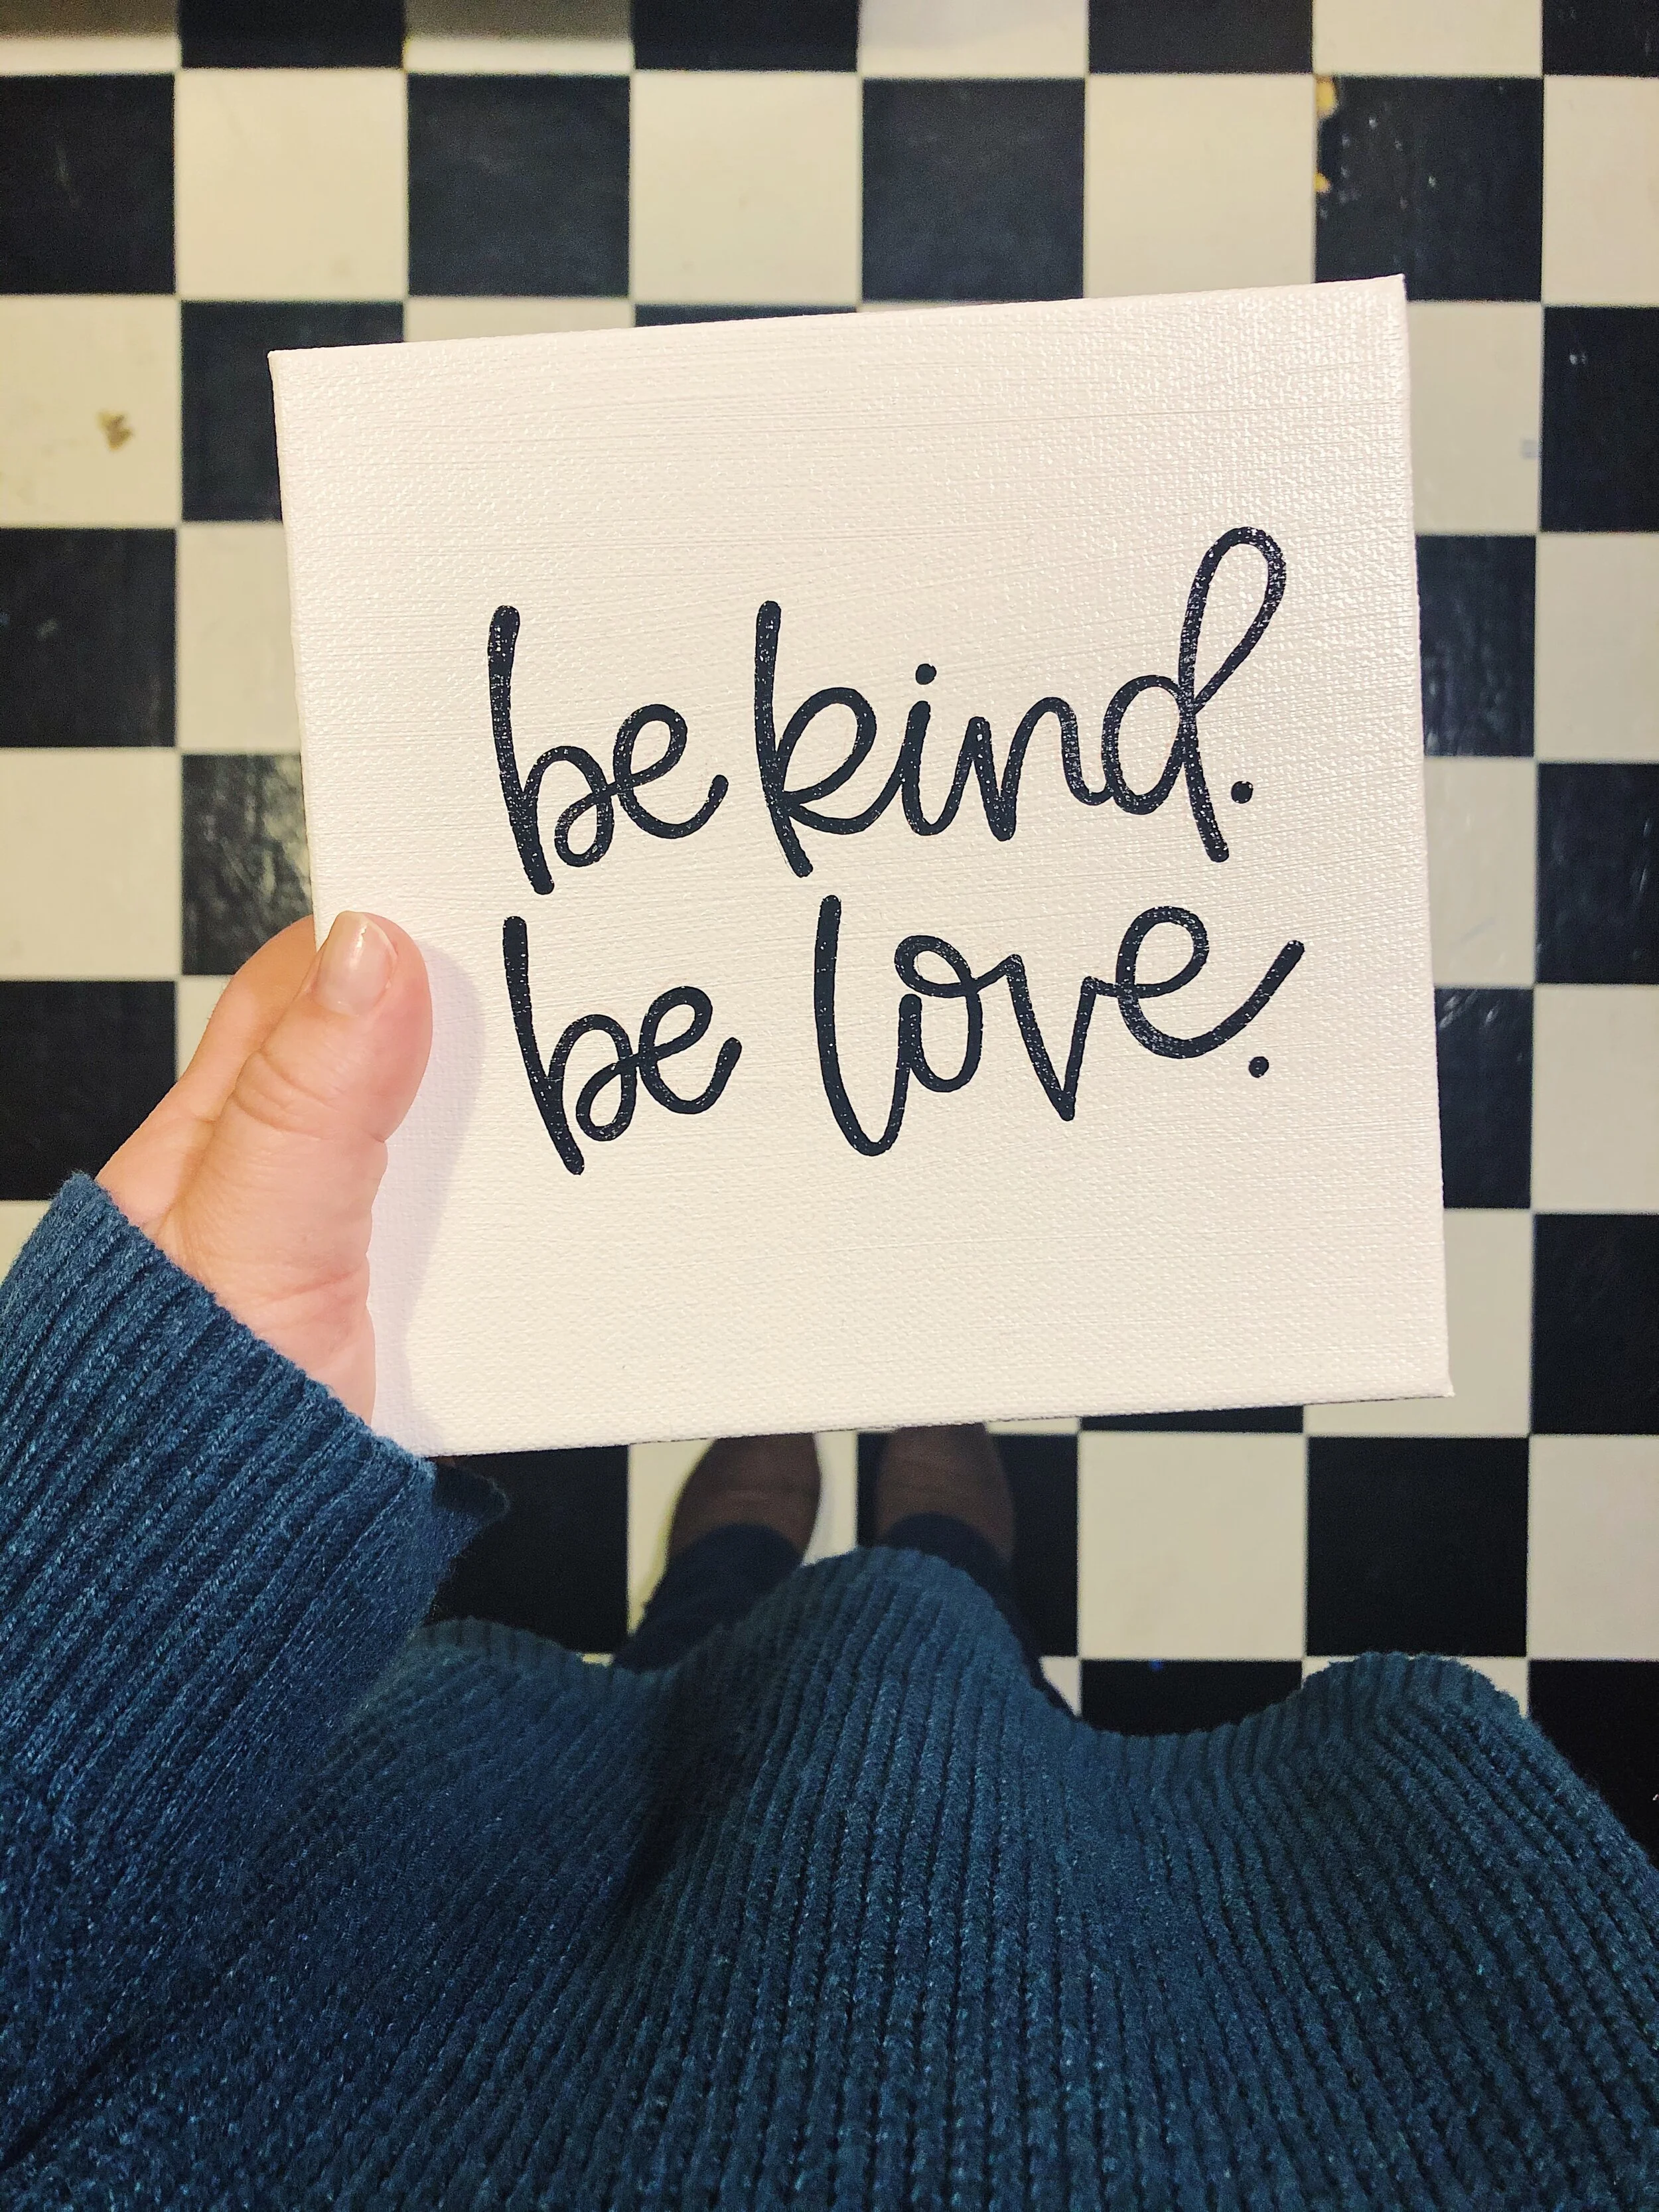 be kind.
be love.